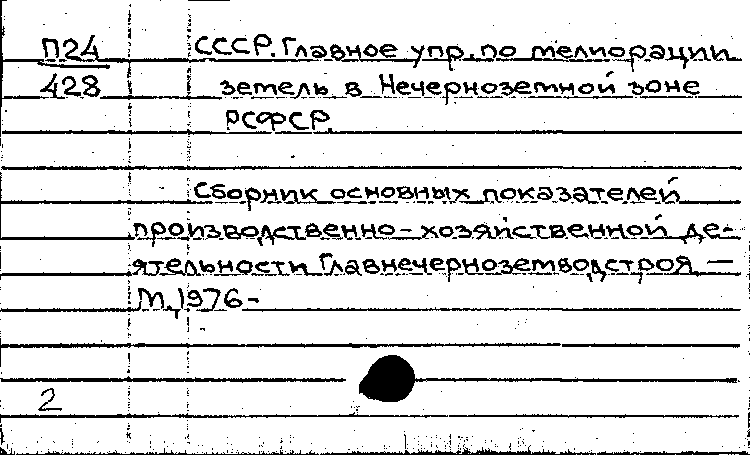 П24 СССР. Главное упр. по мелиорации
428 земель в Нечерноземной зоне
РСФСР.
Сборник основных показателей
производственно-хозяйственной де-
ятельности Главнечерноземводстроя. —
М., 1976-
2